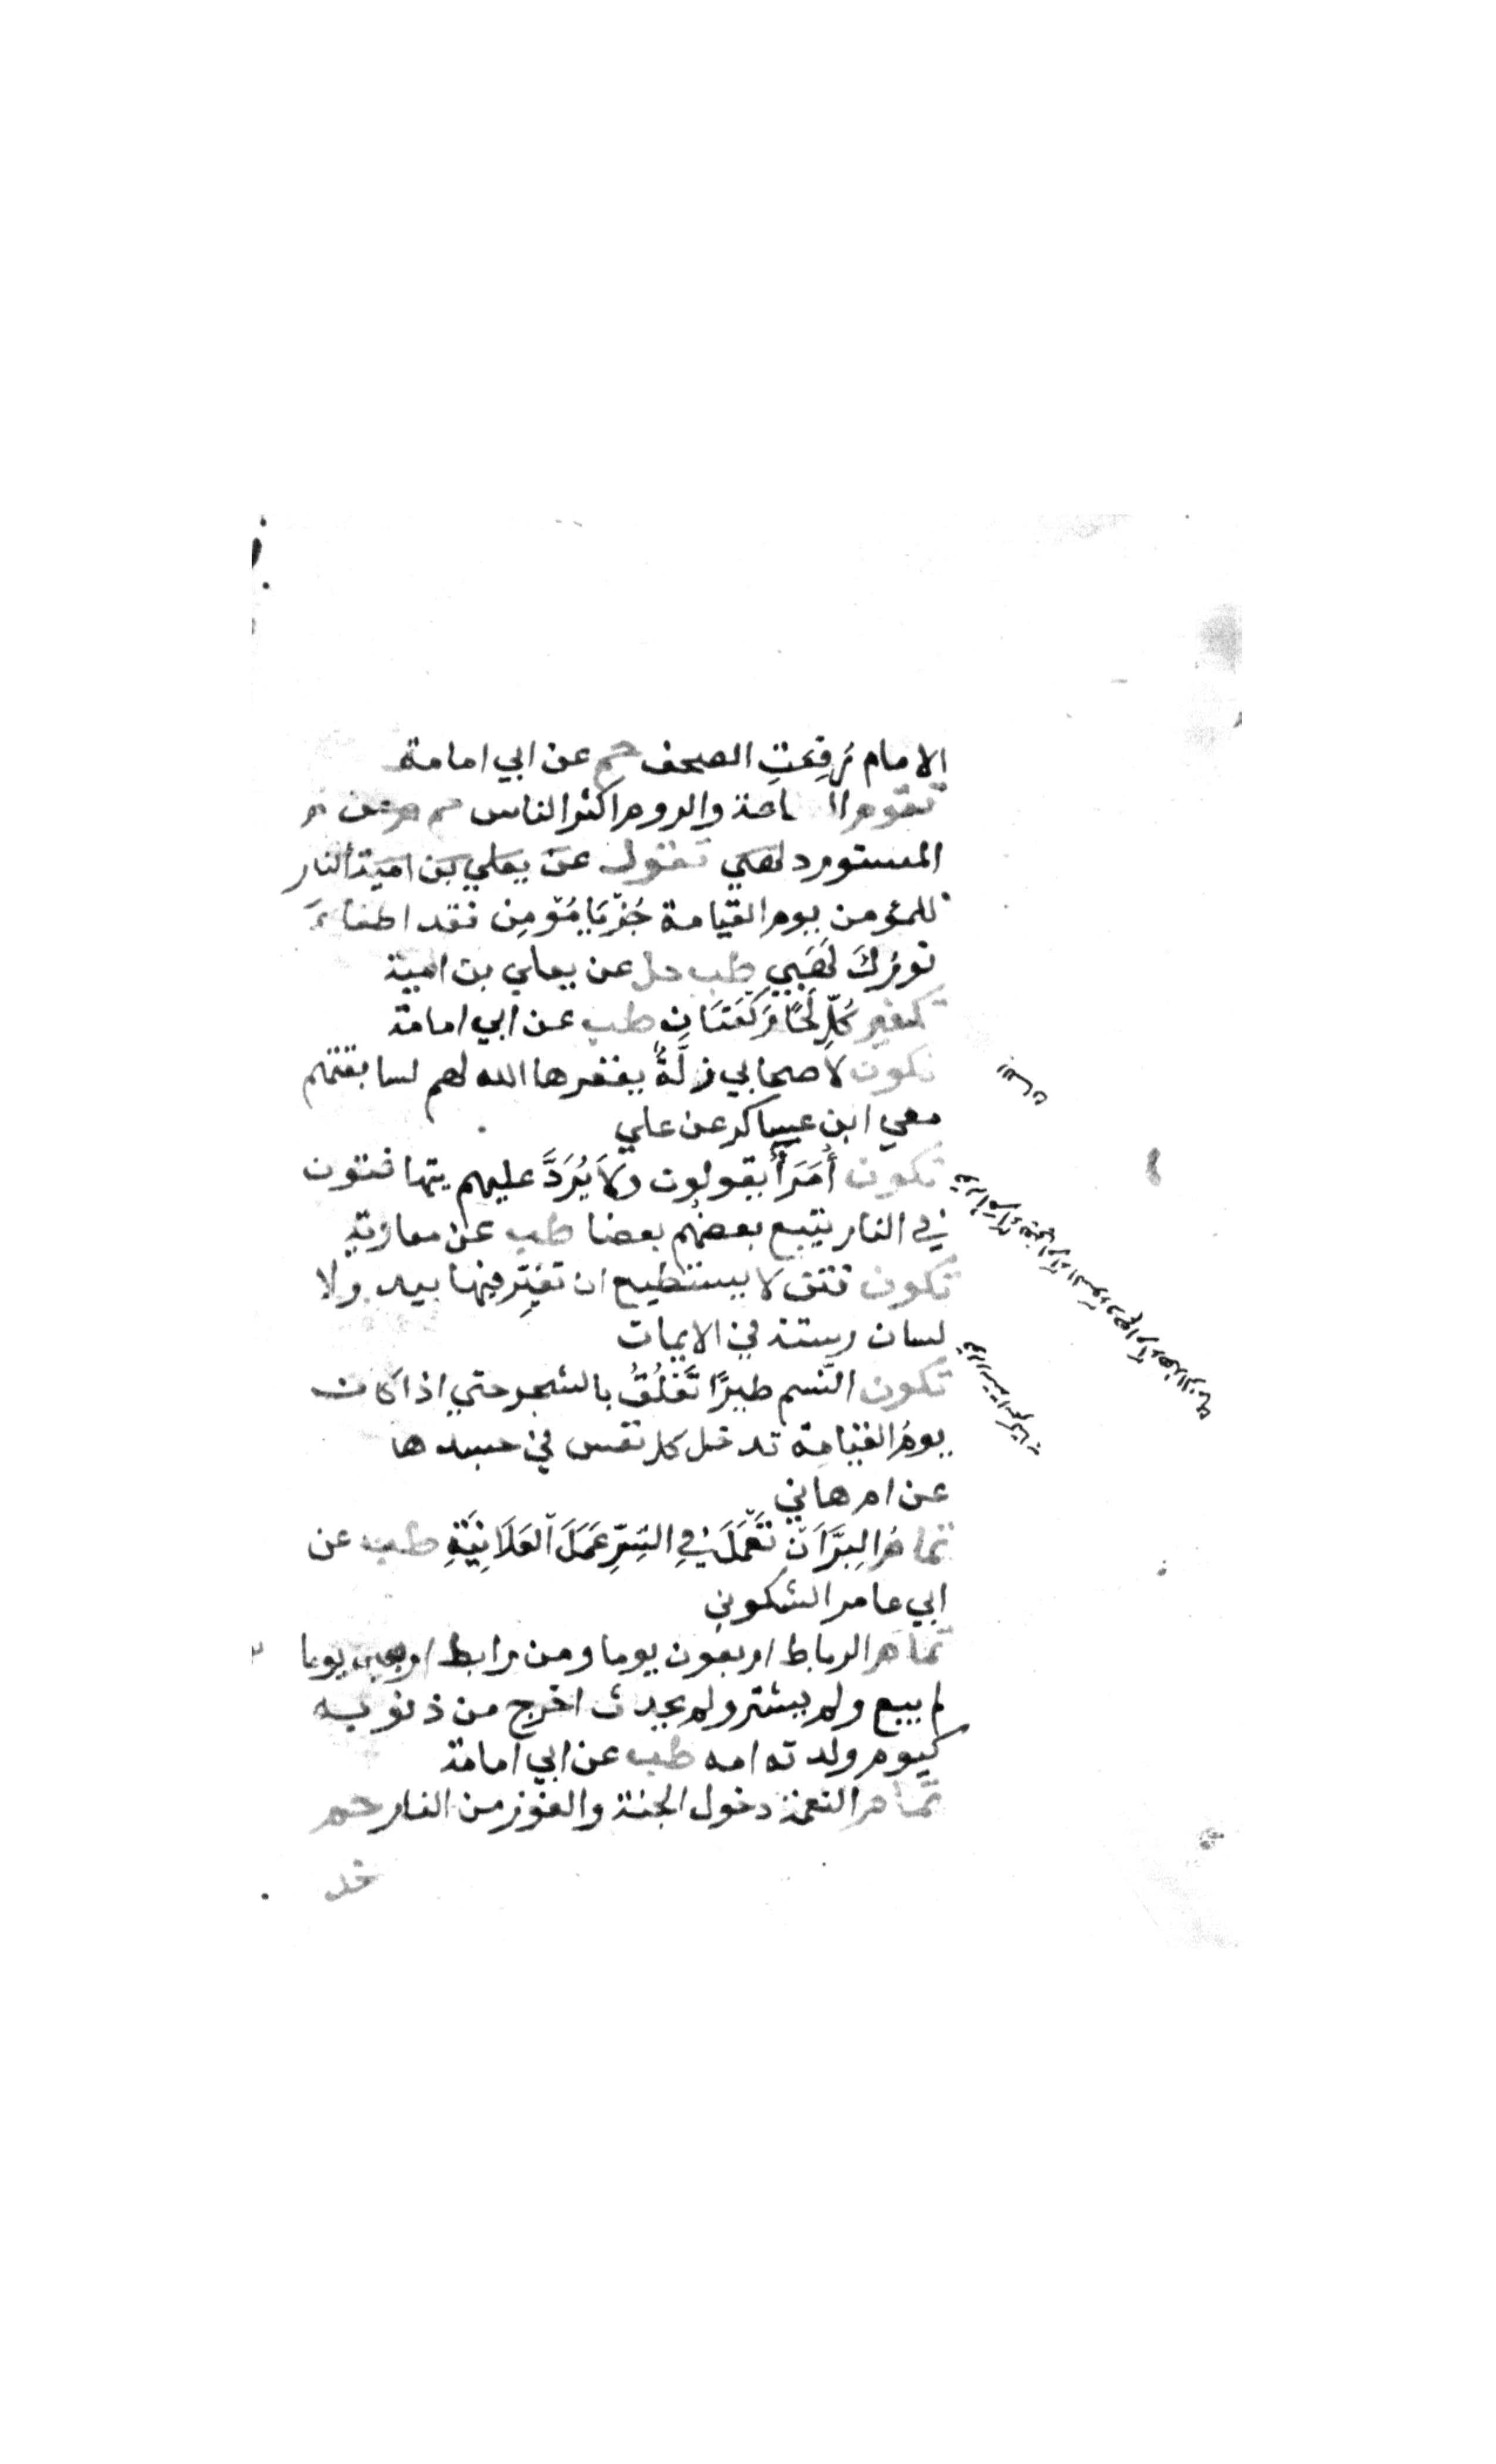 الامام رُفِعَتِ الصحف حم عن ابي امامة
تقوم الساعة والروم اكثر الناس حم م عن
المستورد لهبي تقول عن يعلي بن امية النار
للمؤمن يوم القيامة جُزْ يَا مُؤمِن فقد اطفا
نورُكَ لَهَبِي طب حل عن يعلي بن امية
تكفير كُلِّ لِحَاءٍ رَكْعَتَانِ طب عن ابي امامة
تكون لاصحابي زَلَّةٌ يغفرها الله لهم لسابقتهم
معي ابن عساكر عن علي
تكون أُمَرَأُ يقولون وَلاَ يُرَدَّ عليهم يتهافتون
في النار يتبع بعضُهم بعضا طب عن معاوية
تكون فتن لا يستطيع ان تغيّر فيها بيد ولا
لسان رسته في الايمان
تكون النَّسم طيرًا تَعْلُقُ بالشجر حتي اذا كان
يومُ القيامة تدخل كل نفس في جسدها
عن ام هاني
تمامُ البِرِّ اَنْ تَعْمَلَ فِي السِّرِّ عَمَلَ اَلعَلَانِيَةِ طب عن
ابي عامر السكوني
تمام الرباط اربعون يوما ومن رابط اربعين يوما
لم يبيع ولم يشتر ولم يحدث اخرج من ذنوبه
كيوم ولدته امه طب عن ابي امامة
تمام النعمة دخول الجنة والفوز من النار حم
خد